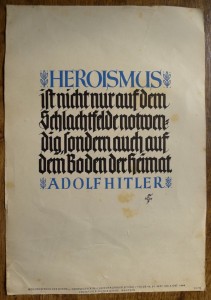 HEROISMUS
ist nicht nur auf dem
Schlachtfelde notwen-
dig, sondern auch auf
dem Boden der Heimat
ADOLF HITLER